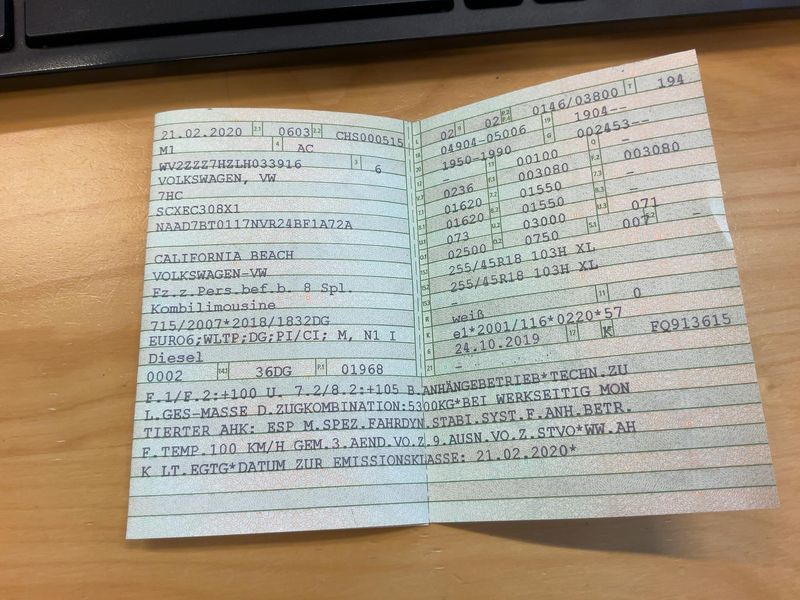 21.02.2020 2.1 0603 2.2 CHS000515
M1 4 AC
WV2ZZZ7HZLH033916 3 6
VOLKSWAGEN, VW
7HC
SCXEC308X1
NAAD7BT0117NVR24BF1A72A
CALIFORNIA BEACH
VOLKSWAGEN-VW
Fz.z.Pers.bef.b. 8 Spl.
Kombilimousine
715/2007*2018/1832DG
EURO6;WLTP;DG;PI/CI; M, N1 I
Diesel
0002 14.1 36DG P.1 01968
L 02 9 02 P.2 P.4 0146/03800 T 194
18 04904-05006 19 1904--
20 1950-1990 G 002453--
12 - 13 00100 Q -
V.7 0236 F.1 003080 F.2 003080
7.1 01620 7.2 01550 7.3 -
8.1 01620 8.2 01550 8.3 -
U.1 073 U.2 03000 U.3 071
O.1 02500 O.2 0750 S.1 007 S.2 -
15.1 255/45R18 103H XL
15.2 255/45R18 103H XL
15.3 -
R weiß 11 0
K e1*2001/116*0220*57
6 24.10.2019 17 K 16 FQ913615
21 -
F.1/F.2:+100 U. 7.2/8.2:+105 B.ANHÄNGEBETRIEB*TECHN.ZU
L.GES-MASSE D.ZUGKOMBINATION:5300KG*BEI WERKSEITIG MON
TIERTER AHK: ESP M.SPEZ.FAHRDYN.STABI.SYST.F.ANH.BETR.
F.TEMP.100 KM/H GEM.3.AEND.VO.Z.9.AUSN.VO.Z.STVO*WW.AH
K LT.EGTG*DATUM ZUR EMISSIONSKLASSE: 21.02.2020*